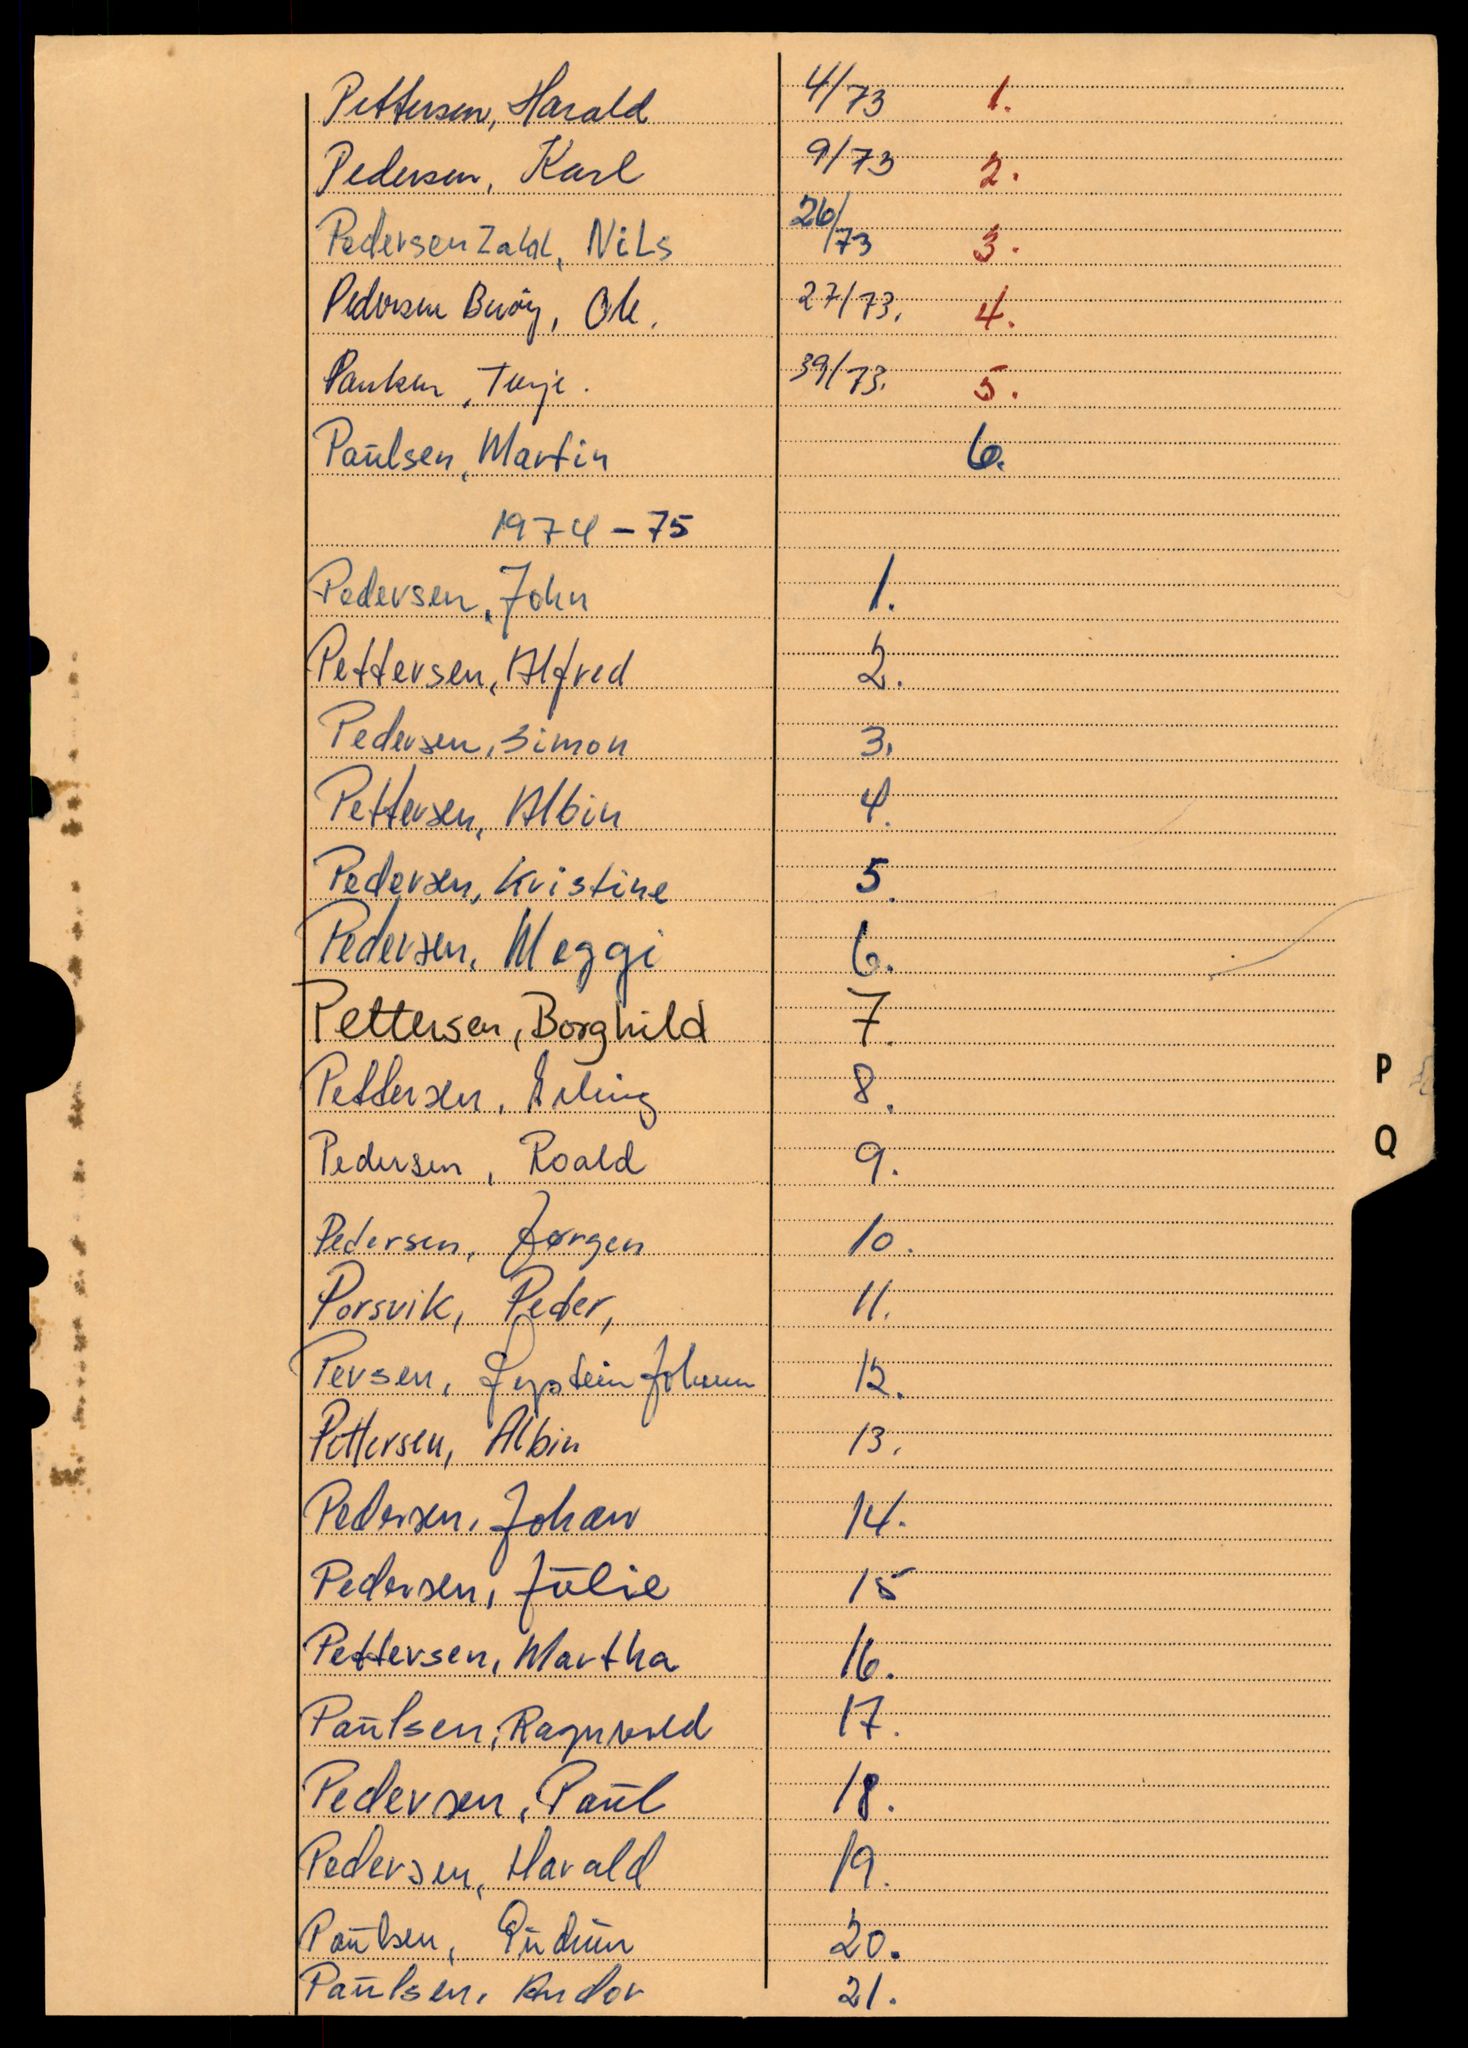 Pettersen, Harald 4/73 1.
Pedersen, Karl 9/73 2.
Pedersen Zahl, Nils 26/73 3.
Pedersen, Ole. 27/73. 4.
Terje. 39/73. 5.
Paulsen, Martin 6.
1974-75
Pedersen, John 1.
Pettersen, Alfred 2.
Pedersen, Simon 3.
Pettersen, Albin 4.
Pedersen, Kristine 5.
Pedersen, Meggi 6.
Pettersen, Borghild 7.
Pettersen, Erling 8.
Pedersen, Roald 9.
Pedersen, Jørgen 10.
Porsvik, Peder, 11.
Persen, Øystein Johann 12.
Pettersen, Albin 13.
Pedersen, Johan 14.
Pedersen, Julie 15
Pettersen, Martha 16.
Paulsen, Ragnvald 17.
Pedersen, Paul 18.
Pedersen, Harald 19.
Paulsen, Gudrun 20.
Paulsen, Andor 21.
P
Q